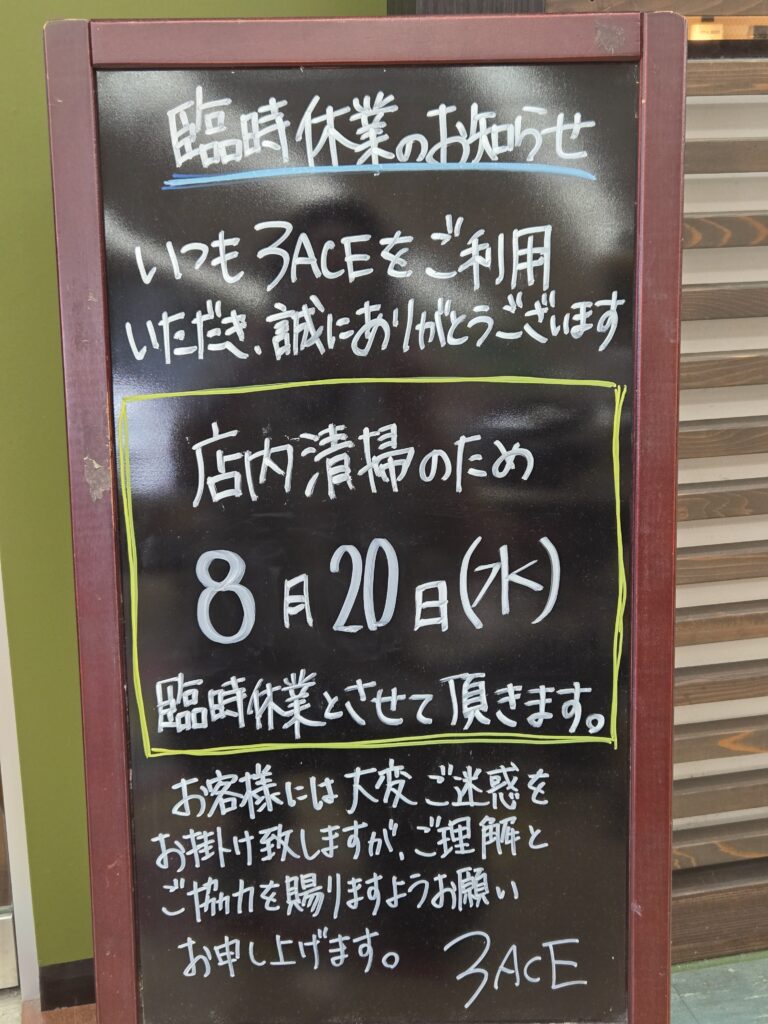 臨時休業のお知らせ
いつも3ACEをご利用
いただき、誠にありがとうございます
店内清掃のため
8月20日(水)
臨時休業とさせて頂きます。
お客様には大変ご迷惑を
お掛け致しますが、ご理解と
ご協力を賜りますようお願い
お申し上げます。
3ACE